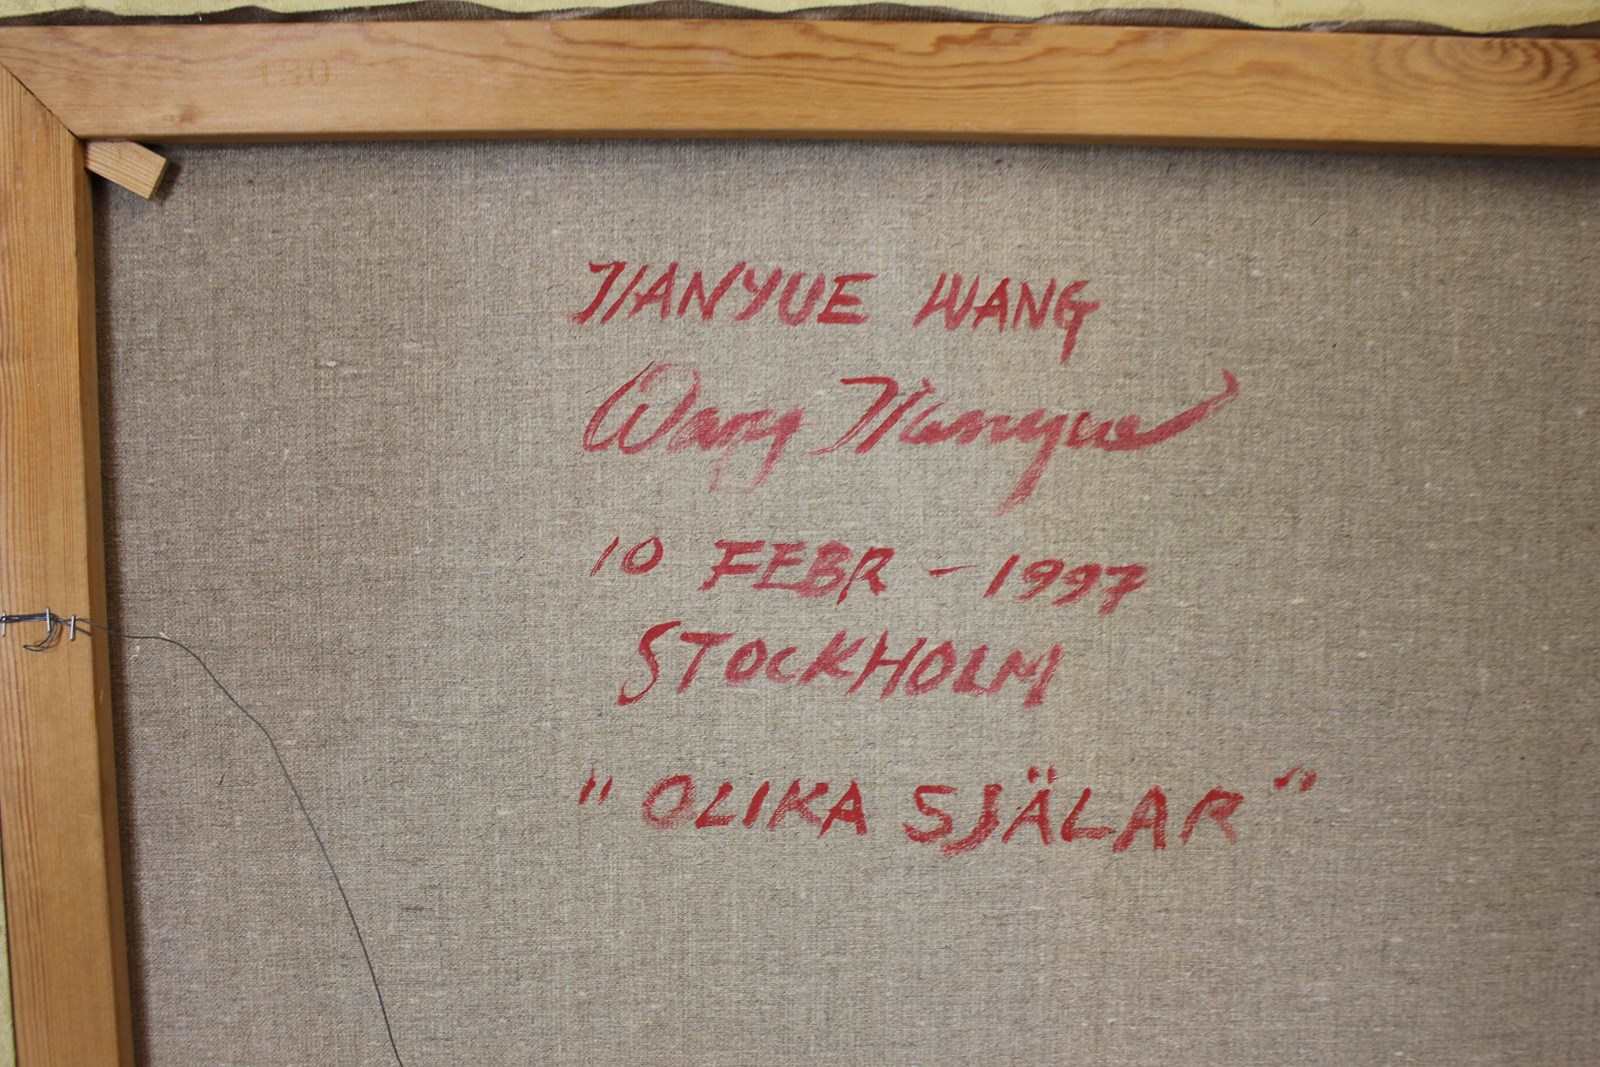 130
TIANYUE WANG
Wang Tianyue
10 FEBR - 1997
STOCKHOLM
"OLIKA SJÄLAR"